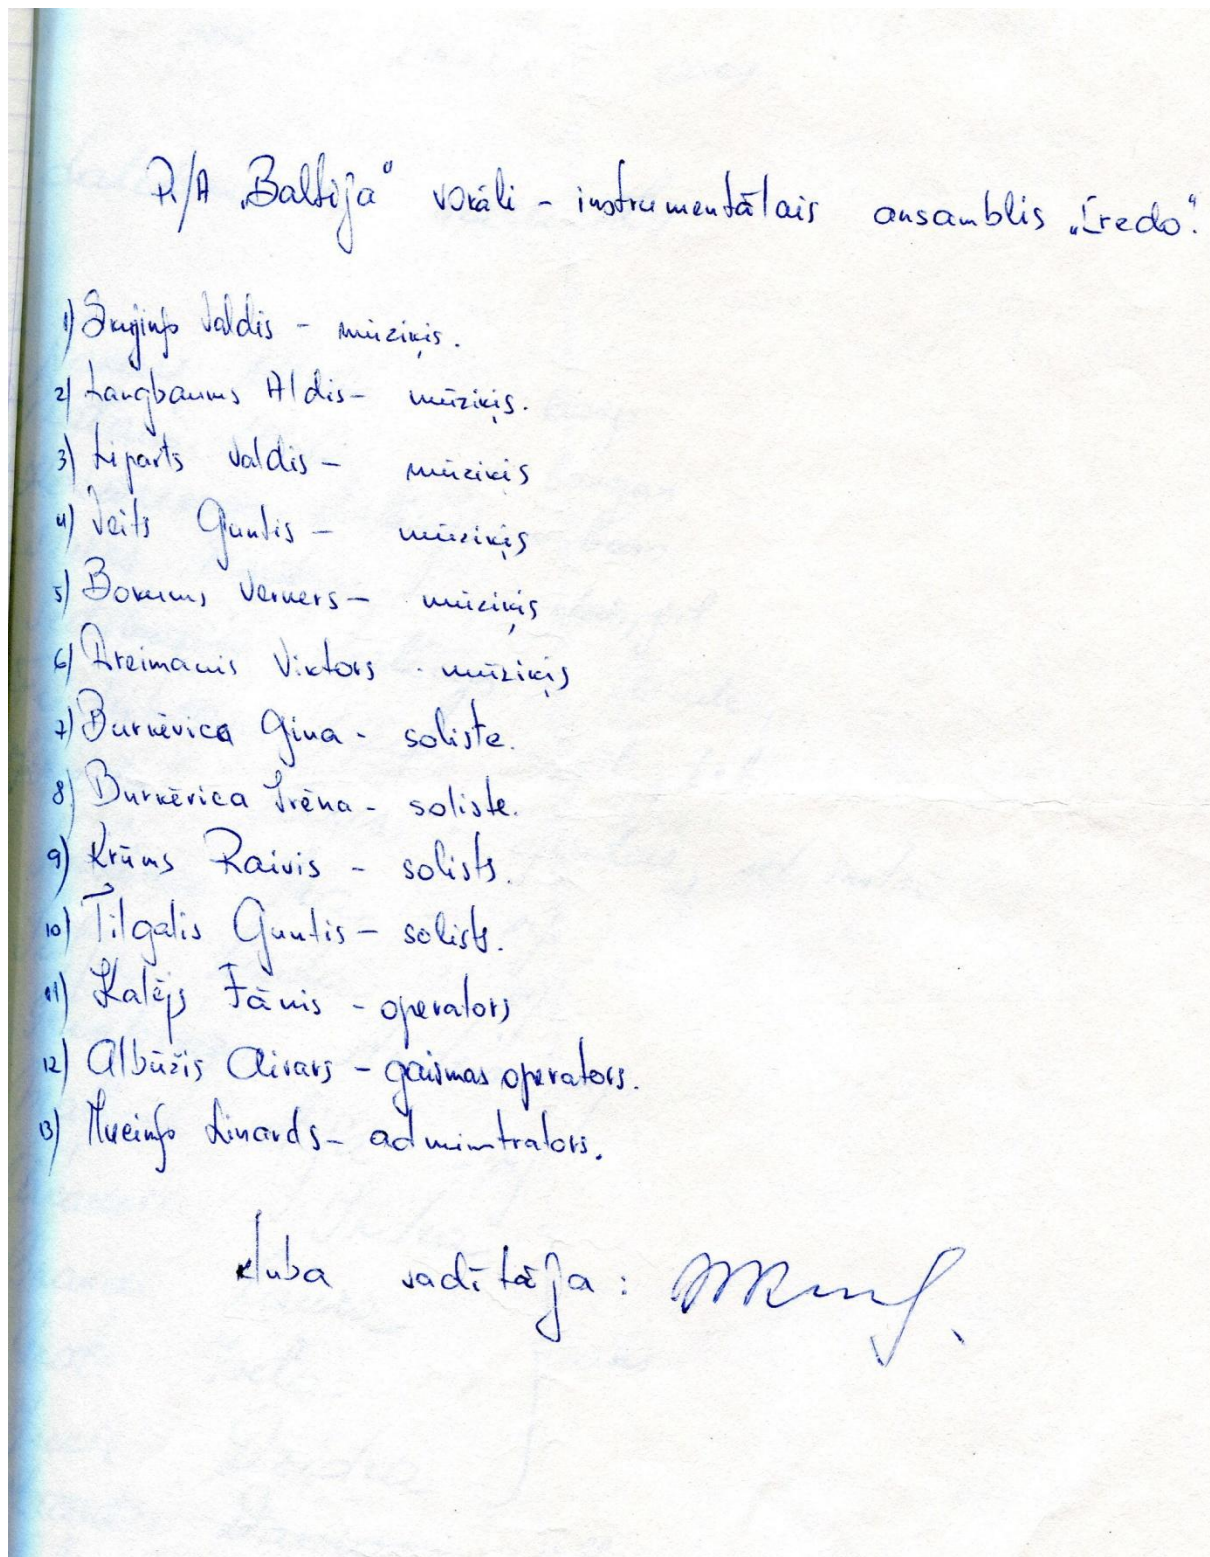 R/A „Baltija" vokāli - instrumentālais ansamblis „Credo".
1) Skujiņš Valdis - mūziķis.
2) Langbaums Aldis - mūziķis.
3) Liparts Valdis - mūziķis
4) Veits Guntis - mūziķis
5) Bokums Verners - mūziķis
6) Dreimanis Viktors - mūziķis
7) Burkēvica Gina - soliste.
8) Burkēvica Irēna - soliste.
9) Krūms Raivis - solists.
10) Tilgalis Guntis - solists.
11) Kalējs Jānis - operators
12) Albūžis Aivars - gaismas operators.
13) Muciņš Linards - adminstrators.
kluba vadītāja: